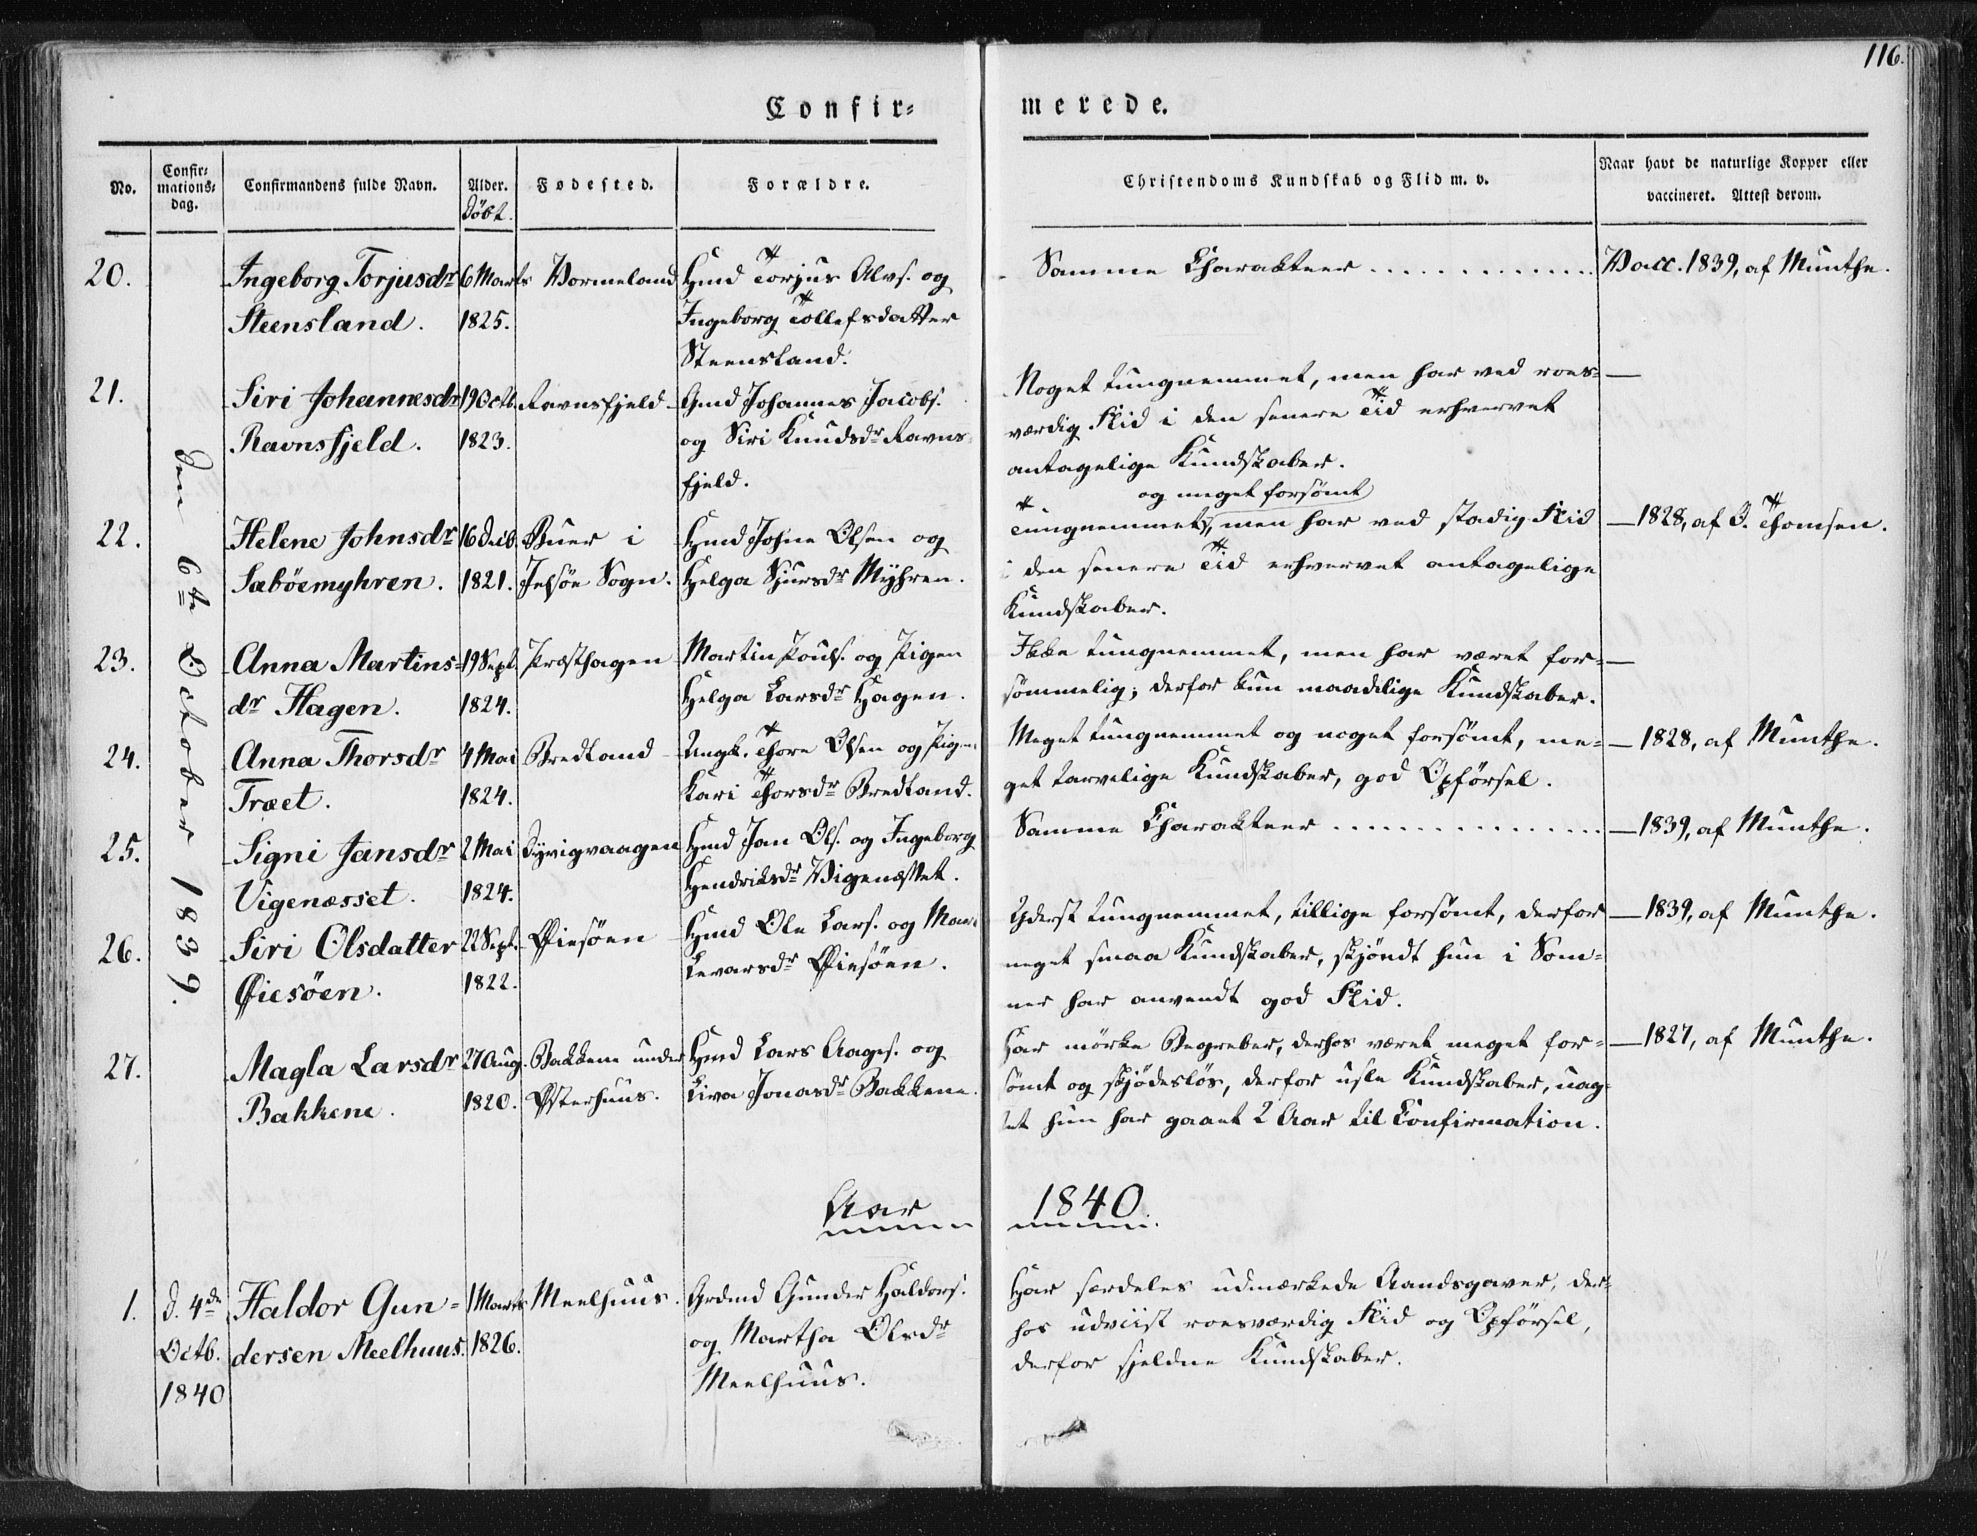 116.
Confir=
merede.
No.
Confir=
mations=
dag.
Confirmandens fulde Navn.
Alder.
Döbt.
Fødested.
Forældre.
Christendoms Kundskab og Flid m. v.
Naar havt de naturlige Kopper eller
vaccineret. Attest derom.
den 6te October 1839.
20.
Ingeborg Torjusdr
Steensland.
6 Marts
1825.
Vormeland
Hmd Torjus Alvs. og
Ingeborg Tollefsdatter
Steensland.
Samme Charakteer . . . . . . . . . . . .
Vacc. 1839, af Munthe.
21.
Siri Johannesdr
Ravnsfjeld.
19 Octb.
1823.
Ravnsfjeld
Gmd Johannes Jacobs.
og Siri Knudsdr Ravns=
fjeld.
Noget tungnemmet, men har ved roes=
værdig Flid i den senere Tid erhvervet
antagelige Kundskaber.
—
22.
Helene Johnsdr
Sæböemyhren.
16 Decb.
1821.
Buer i
Jelsöe Sogn.
Hmd Johne Olsen og
Helga Sjursdr Myhren.
og meget forsömt
Tungnemmet, men har ved stadig Flid
i den senere Tid erhvervet antagelige
Kundskaber.
— 1828, af J. Thomsen.
23.
Anna Martins=
dr Hagen.
19 Sept.
1824.
Præsthagen
Martin Pouls. og Pigen
Helga Larsdr Hagen.
Ikke tungnemmet, men har været for=
sömmelig; derfor kun maadelige Kundskaber.
—
24.
Anna Thorsdr
Træet.
4 Mai
1824.
Bredland
Ungk. Thore Olsen og Pigen
Kari Thorsdr Bredland.
Meget tungnemmet og noget forsömt, me=
get tarvelige Kundskaber, god Opförsel.
— 1828, af Munthe.
25.
Signi Jansdr
Vigenæsset.
2 Mai
1824.
Dyvigvaagen
Hmd Jan Ols. og Ingeborg
Hendriksdr Vigenæsset.
Samme Charakteer . . . . . . . . . . . . . . .
— 1839, af Munthe.
26.
Siri Olsdatter
Øiesöen.
22 Sept.
1822.
Øiesöen
Hmd Ole Lars. og
Levarsdr Øiesöen.
Yderst tungnemmet, tillige forsömt, derfor
meget smaa Kundskaber, skjöndt hun i Som=
mer har anvendt god Flid.
— 1839, af Munthe.
27.
Magla Larsdr
Bakkene.
27 Aug.
1820.
Bakkene under
Østerhuus.
Hmd Lars Aages. og
Siva Jonasdr Bakkene.
Har mörke Begreber, derhos været meget for=
sömt og skjödeslös, derfor usle Kundskaber, uag=
tet hun har gaaet 2 Aar til Confirmation.
— 1827, af Munthe.
Aar 1840.
1.
d. 4de
Octb.
1840
Haldor Gun=
dersen Meelhuus.
1 Marts
1826.
Meelhuus.
Grdmd Gunder Haldors.
og Martha Olsdr
Meelhuus.
Har særdeles udmærkede Aandsgaver, der=
hos udviist roesværdig Flid og Opförsel,
derfor sjeldne Kundskaber.